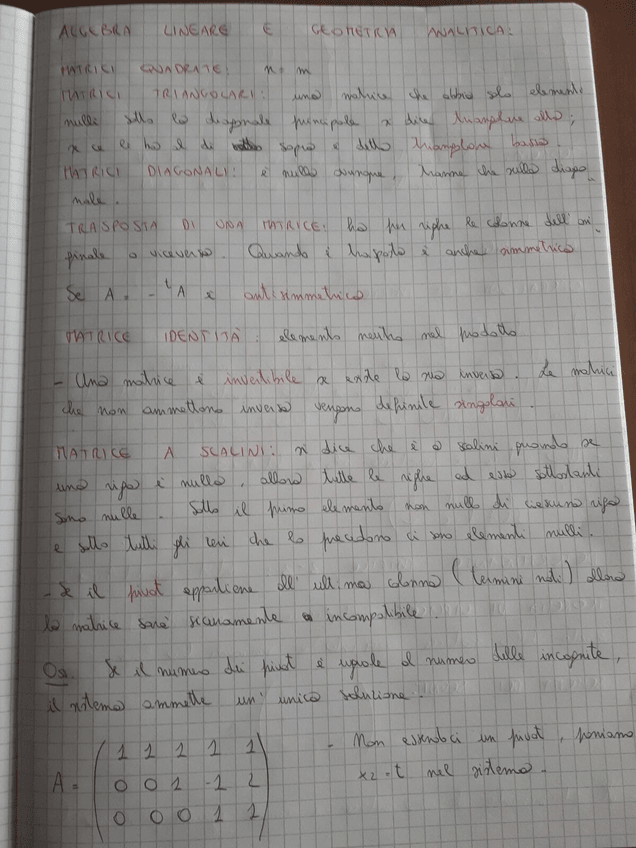 ALGEBRA LINEARE E GEOMETRIA ANALITICA:
MATRICI QUADRATE: n = m
MATRICI TRIANGOLARI: una matrice che abbia solo elementi
nulli sotto la diagonale principale si dice triangolare alta;
se ce li ho al di sopra è detta triangolare bassa.
MATRICI DIAGONALI: è nulla ovunque, tranne che sulla diago-
nale.
TRASPOSTA DI UNA MATRICE: ha per righe le colonne dell'ori-
ginale o viceversa. Quando è trasposta è anche simmetrica
Se A = - ᵗA è antisimmetrica
MATRICE IDENTITÀ: elemento neutro nel prodotto
- Una matrice è invertibile se esiste la sua inversa. Le matrici
che non ammettono inversa vengono definite singolari.
MATRICE A SCALINI: si dice che è a scalini quando se
una riga è nulla, allora tutte le righe ad essa sottostanti
sono nulle. Sotto il primo elemento non nullo di ciascuna riga
e sotto tutti gli zeri che lo precedono ci sono elementi nulli.
- Se il pivot appartiene all'ultima colonna (termini noti) allora
la matrice sarà sicuramente incompatibile.
Oss. Se il numero dei pivot è uguale al numero delle incognite,
il sistema ammette un'unica soluzione.
A = ( 1 1 1 1 1 )
0 0 1 -1 2
0 0 0 1 1
- Non essendoci un pivot, poniamo
x2 = t nel sistema.